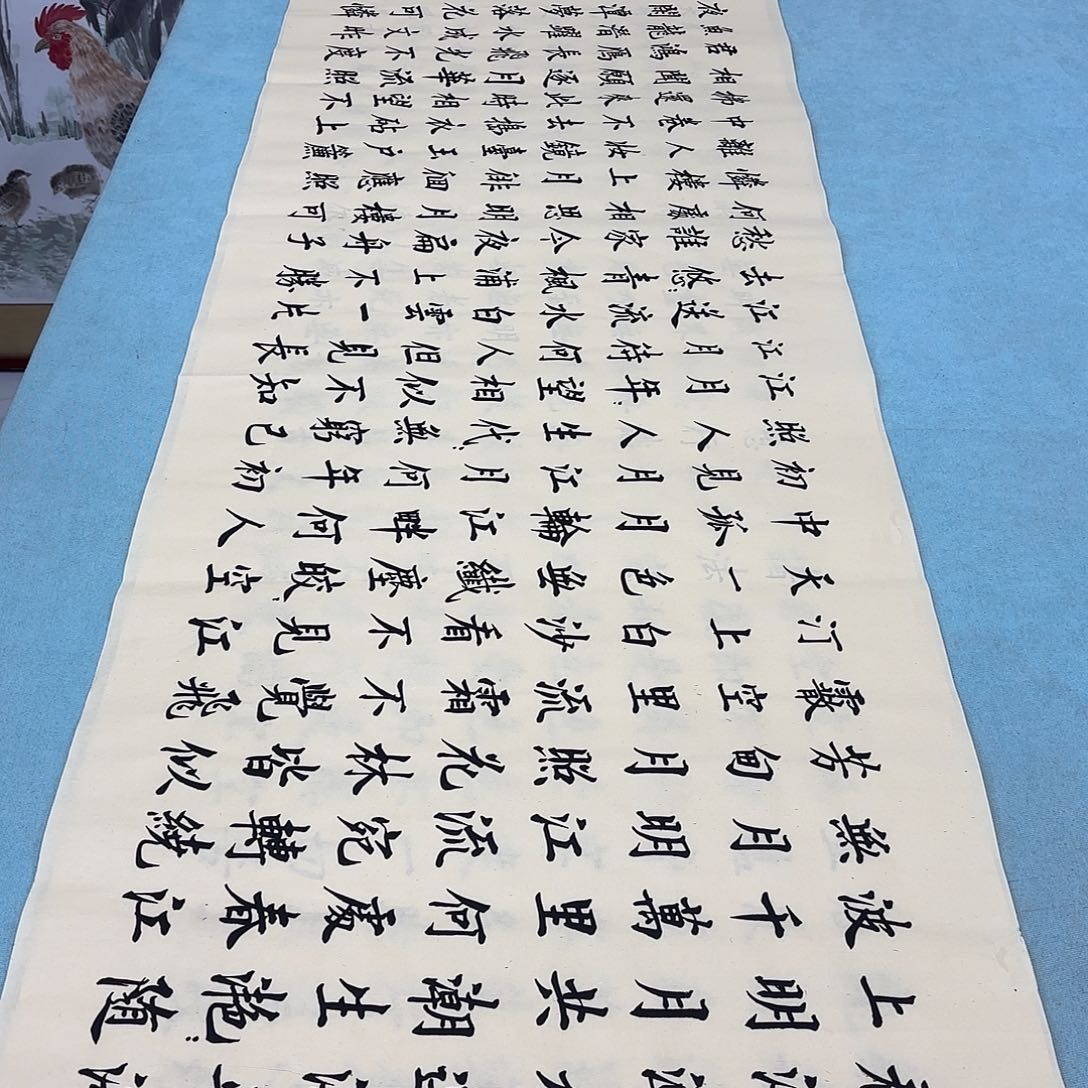 上明月共潮生灩々隨
波千萬里何處春江
無月明江流宛轉繞
芳甸月照花林皆似
霰空里流霜不覺飛
汀上白沙看不見江
天一色無纖塵皎々空
中孤月輪江畔何人
初見月江月何年初
照人人生代々無窮已
江月年々望相似不知
江月待何人但見長
江送流水白雲一片
去悠々青楓浦上不勝
愁誰家今夜扁舟子
何處相思明月樓可
憐樓上月徘徊應照
離人妝鏡臺玉戶簾
中卷不去擣衣砧上
拂還來此時相望不
相聞願逐月華流照
君鴻雁長飛光不度
魚龍潛躍水成文昨
夜閑潭夢落花可憐